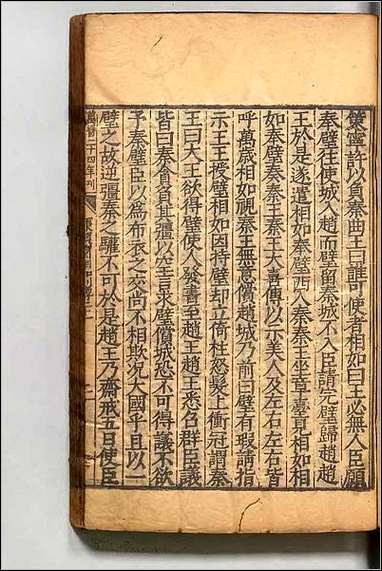 寧許以負秦曲王曰誰可使者相如曰王必無人臣願
奉璧往使城入趙而璧留秦城不入臣請完璧歸趙趙
王於是遂遣相如奉璧西入秦秦王坐章臺見相如相
如奉璧奏秦王秦王大喜傳以示美人及左右左右皆
呼萬歲相如視秦王無意償趙城乃前曰璧有瑕請指
示王王授璧相如因持璧却立倚柱怒髮上衝冠謂秦
王曰大王欲得璧使人發書至趙王趙王悉召群臣議
皆曰秦貪負其彊以空言求璧償城恐不可得議不欲
予秦璧臣以爲布衣之交尚不相欺況大國乎且以一
璧之故逆彊秦之驩不可於是趙王乃齋戒五日使臣
萬曆二十四年刊